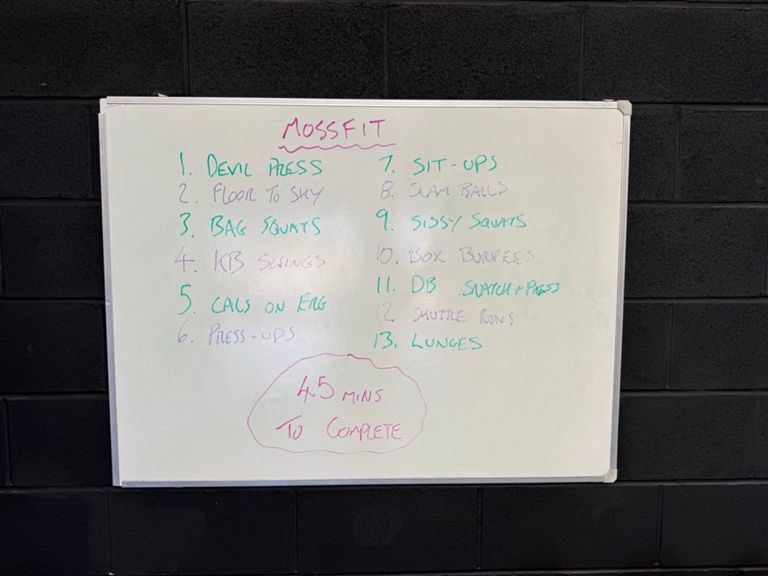 MOSSFIT
1. DEVIL PRESS
2. FLOOR TO SKY
3. BAG SQUATS
4. KB SWINGS
5. CALS ON ERG
6. PRESS-UPS
7. SIT-UPS
8. SLAM BALLS
9. SISSY SQUATS
10. BOX BURPEES
11. DB SNATCH + PRESS
12. SHUTTLE RUNS
13. LUNGES
45 MINS
TO COMPLETE